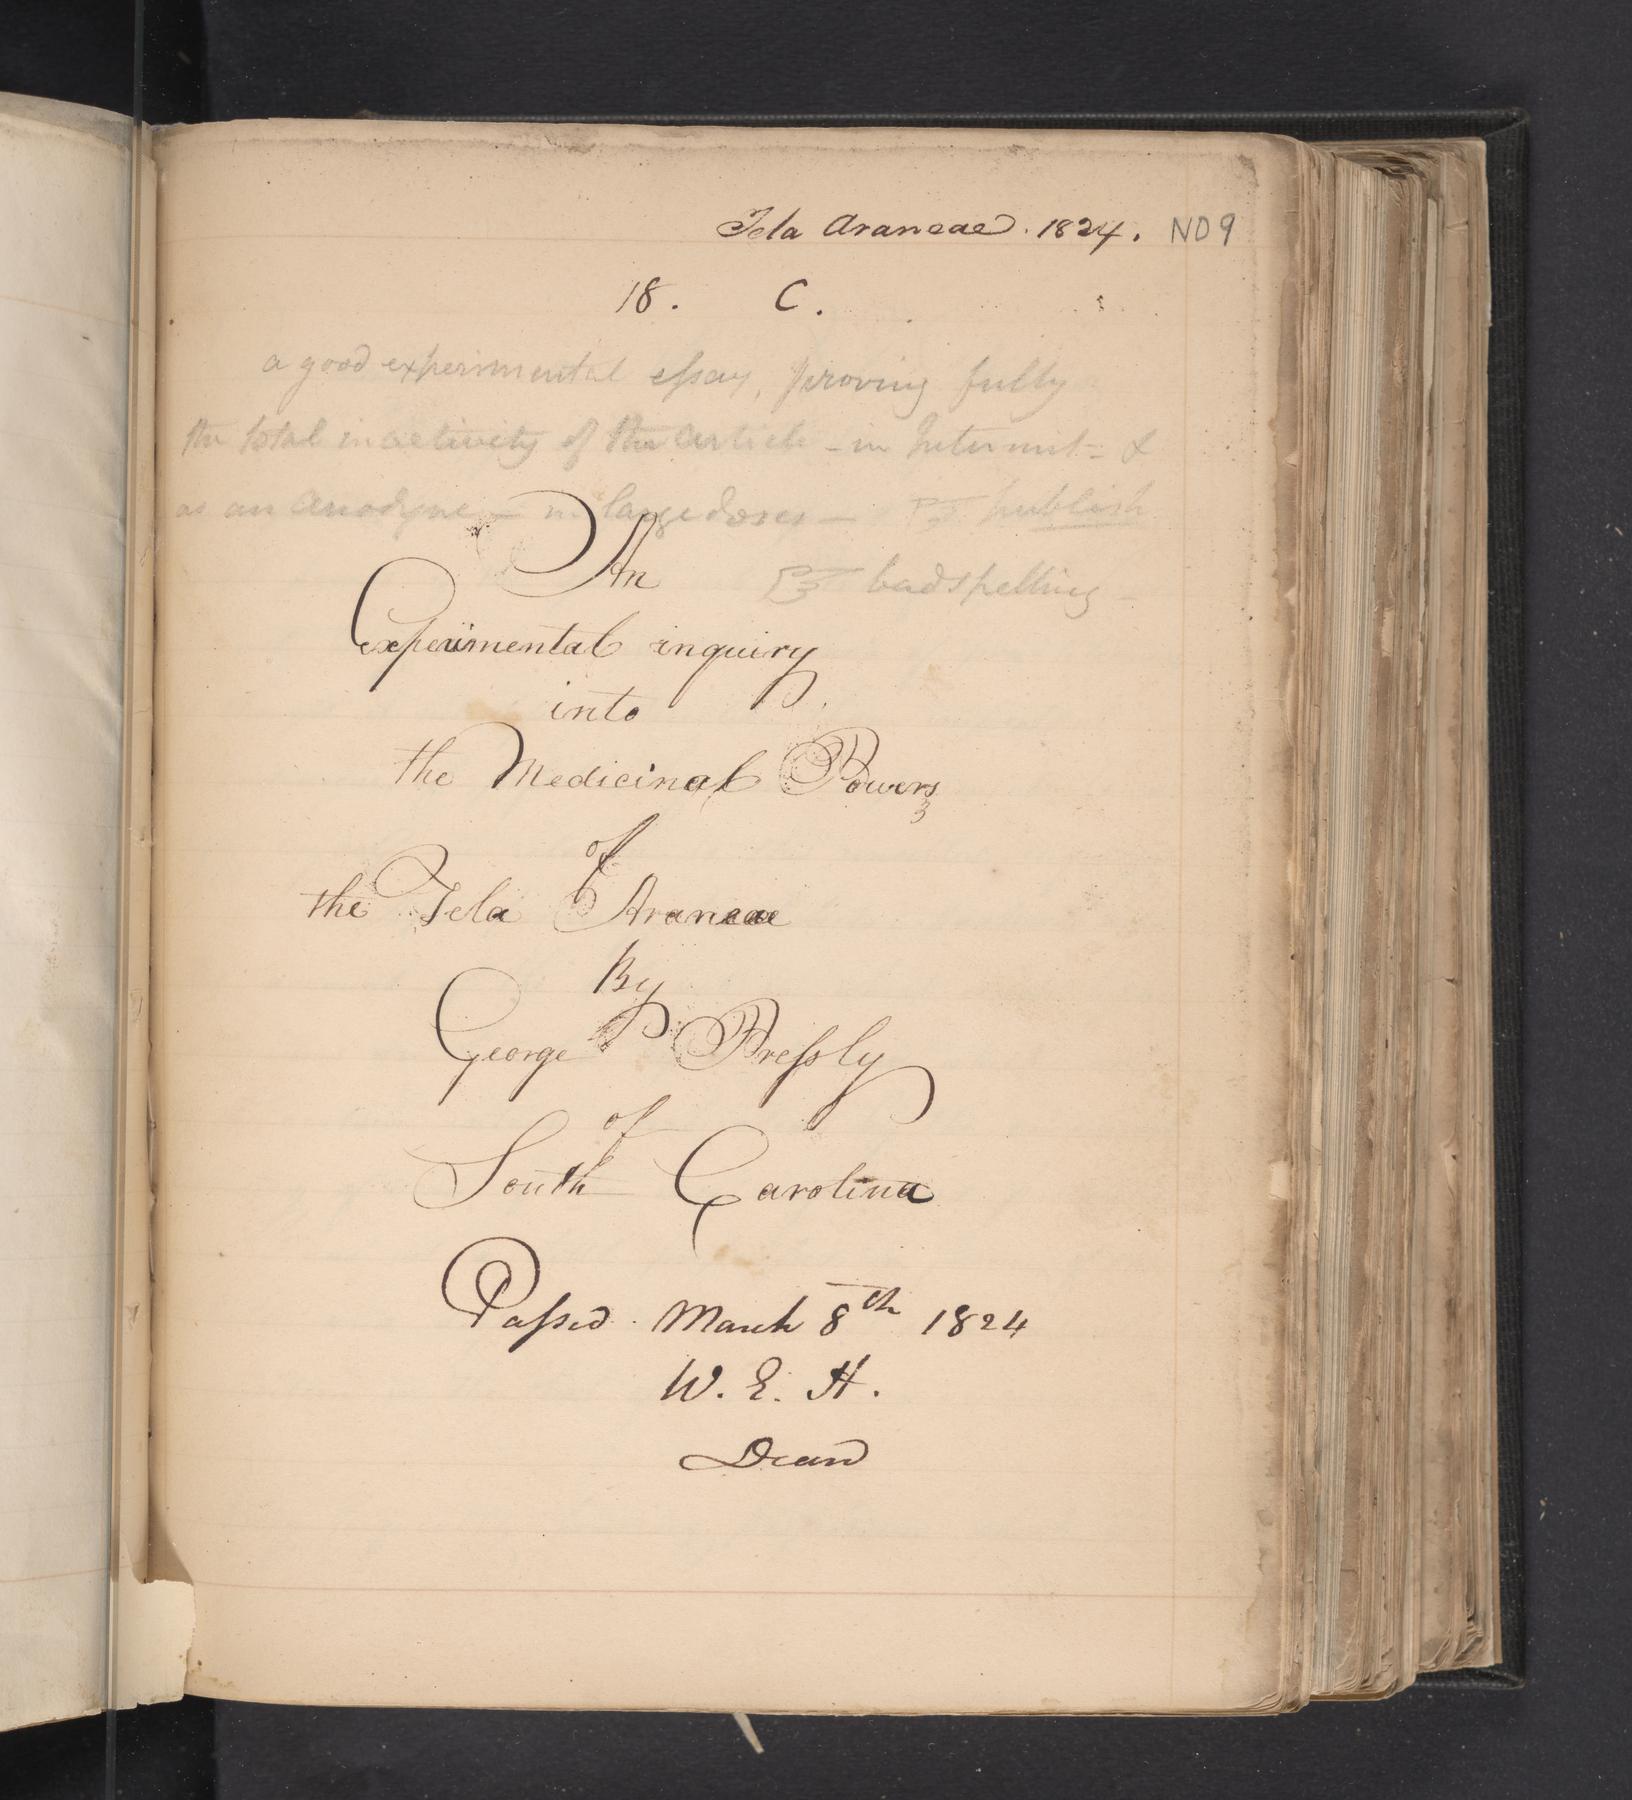 Tela Araneae. 1824. NO 9
18. C.
a good experimental eſsay, proving fully
the total inactivity of the article - in Intermit= &
as an anodyne - in large doses - ☞ publish
An
☞ bad spelling -
Experimental inquiry
into
the Medicinal Powers
of
the Tela Araneae
By
George Preſsly
of
South Carolina
Paſsed. March 8th 1824
W. E. H.
Dean